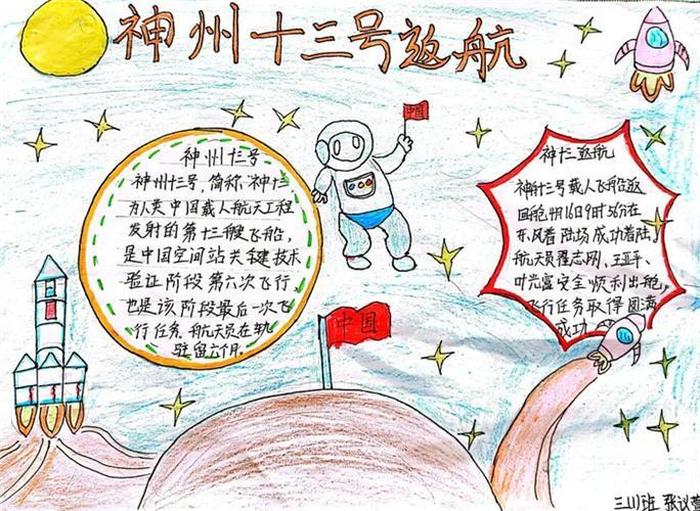 神州十三号返航
中国
神州十三号
神州十三号,简称、神十三,
为人类中国载人航天工程
发射的第十三艘飞船,
是中国空间站关键技术
验证阶段第六次飞行,
也是该阶段最后一次飞
行任务.航天员在轨
驻留六个月.
神十三返航
神舟十三号载人飞船返
回舱州16日9时56分在
东风着陆场成功着陆,
航天员翟志刚、王亚平、
叶光富安全顺利出舱,
飞行任务取得圆满
成功
中国
班 张议